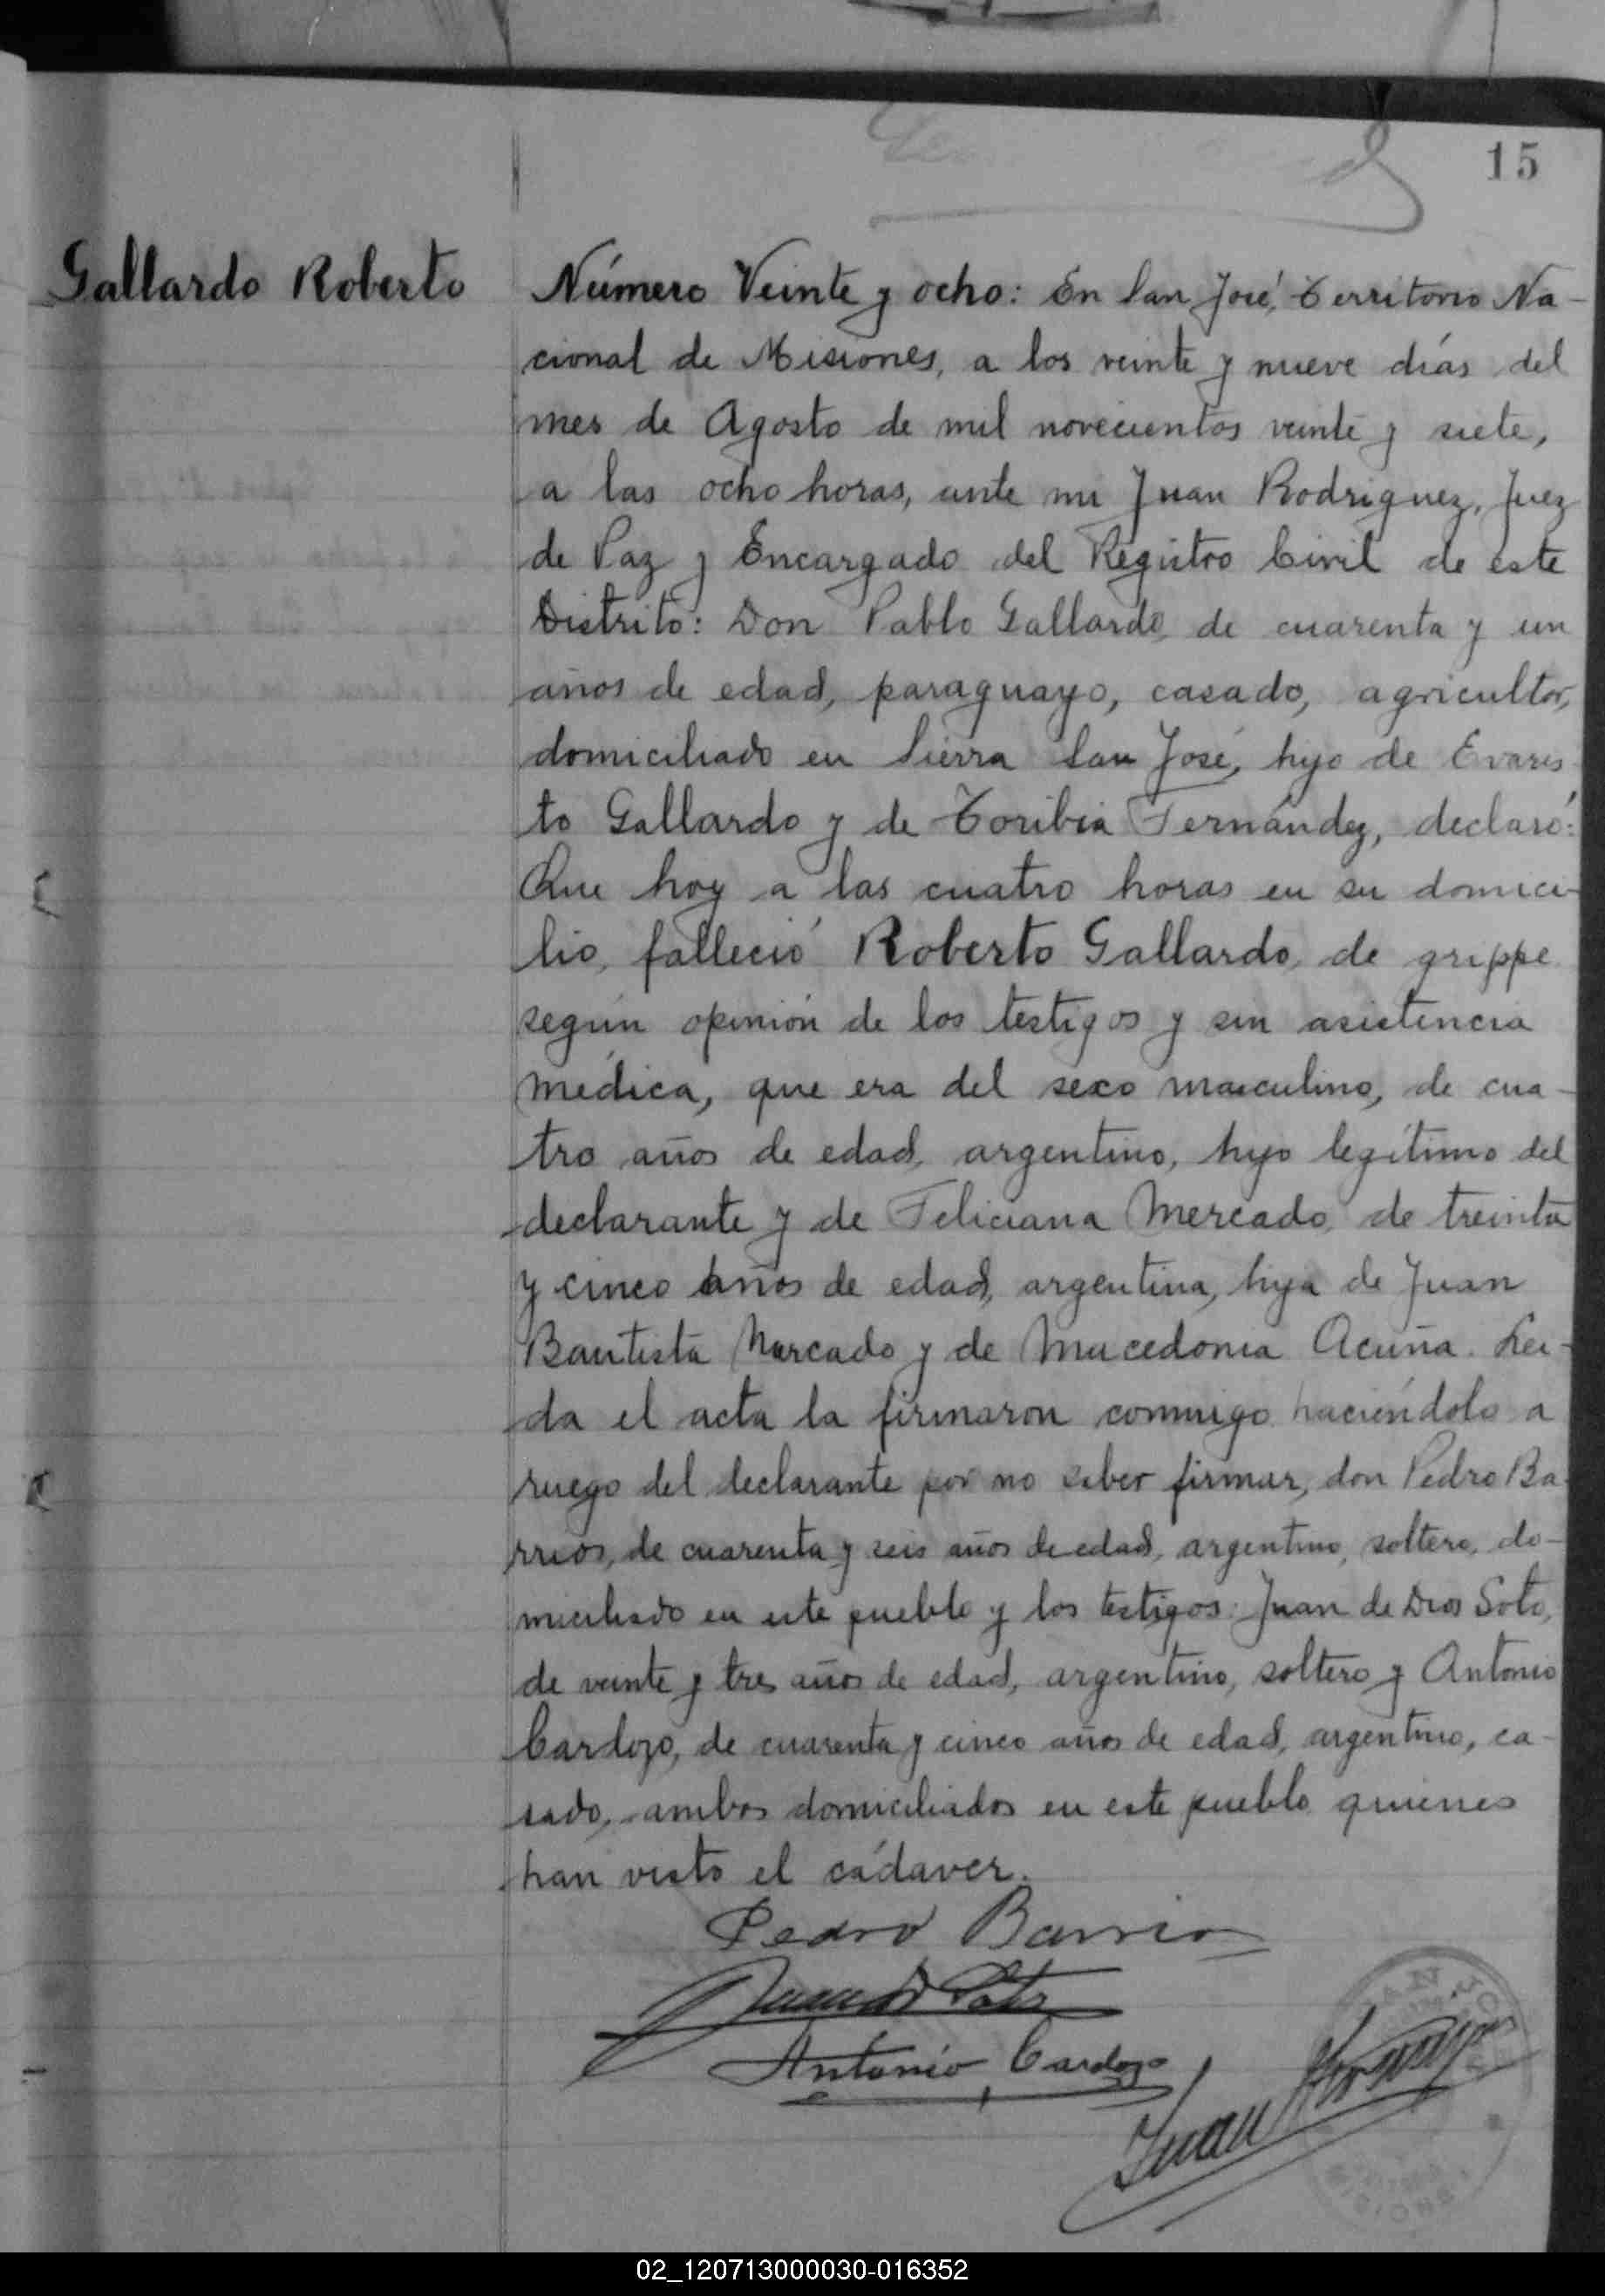 15
Gallardo Roberto
Número Veinte y ocho: En San José, Territorio Na-
cional de Misiones, a los veinte y nueve días del
mes de Agosto de mil novecientos veinte y siete,
a las ocho horas, ante mi Juan Rodriguez, Juez
de Paz y Encargado del Registro Civil de este
Distrito: Don Pablo Gallardo, de cuarenta y un
años de edad, paraguayo, casado, agricultor,
domiciliado en Sierra San José, hijo de Evaris-
to Gallardo y de Toribia Fernández, declaró:
Que hoy a las cuatro horas en su domici-
lio, falleció Roberto Gallardo, de grippe
según opinión de los testigos y sin asistencia
médica, que era del sexo masculino, de cua-
tro años de edad, argentino, hijo legítimo del
declarante y de Feliciana Mercado, de treinta
y cinco años de edad, argentina, hija de Juan
Bautista Mercado y de Macedonia Acuña. Lei-
da el acta la firmaron conmigo haciéndolo a
ruego del declarante por no saber firmar, don Pedro Ba-
rrios, de cuarenta y seis años de edad, argentino, soltero, do-
miciliado en este pueblo y los testigos: Juan de Dios Soto,
de veinte y tres años de edad, argentino, soltero y Antonio
Cardozo, de cuarenta y cinco años de edad, argentino, ca-
sado, ambos domiciliados en este pueblo quienes
han visto el cádaver.
Pedro Barrios
Juan D Soto
Antonio Cardozo
Juan
02_120713000030-016352